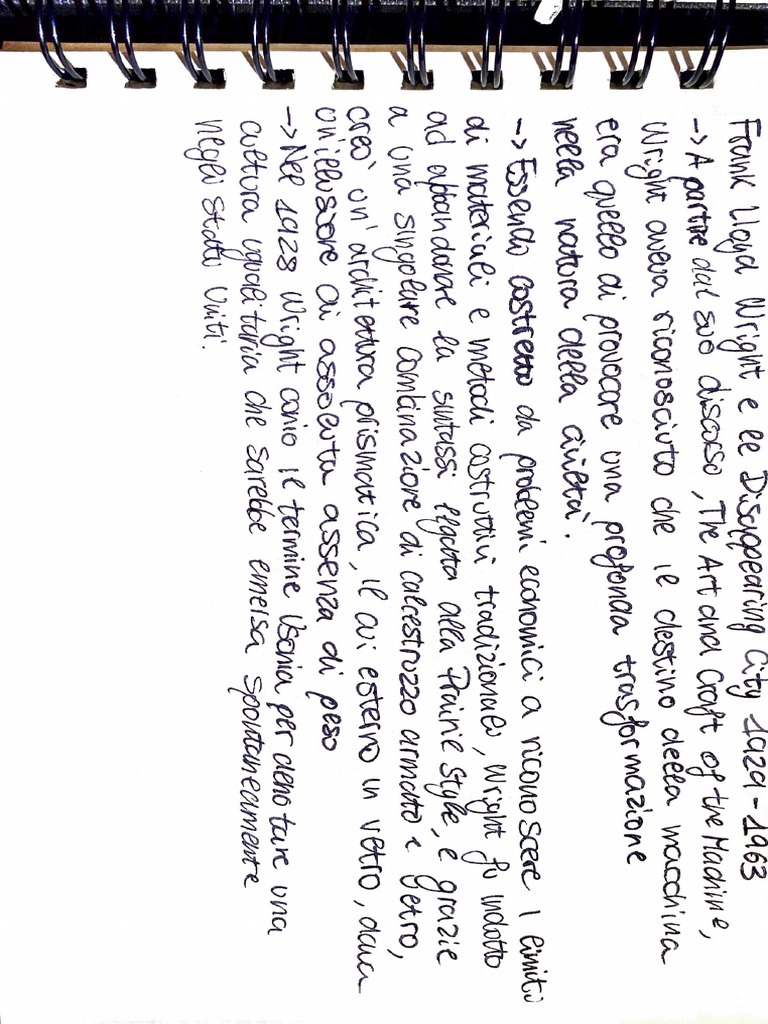 Frank Lloyd Wright e le Disappearing City 1929-1963
-> A partire dal suo discorso, The Art and Craft of the Machine,
Wright aveva riconosciuto che il destino della macchina
era quello di provocare una profonda trasformazione
nella natura della civiltà.
-> Essendo costretto da problemi economici a riconoscere i limiti
di materiali e metodi costruttivi tradizionali, Wright fu indotto
ad abbandonare la sintassi legata alla Prairie Style, e grazie
a una singolare combinazione di calcestruzzo armato e vetro,
creò un'architettura prismatica, il cui esterno in vetro, dava
un'illusione di assoluta assenza di peso
-> Nel 1928 Wright conio il termine Usonia per denotare una
cultura ugualitaria che sarebbe emersa spontaneamente
negli Stati Uniti.